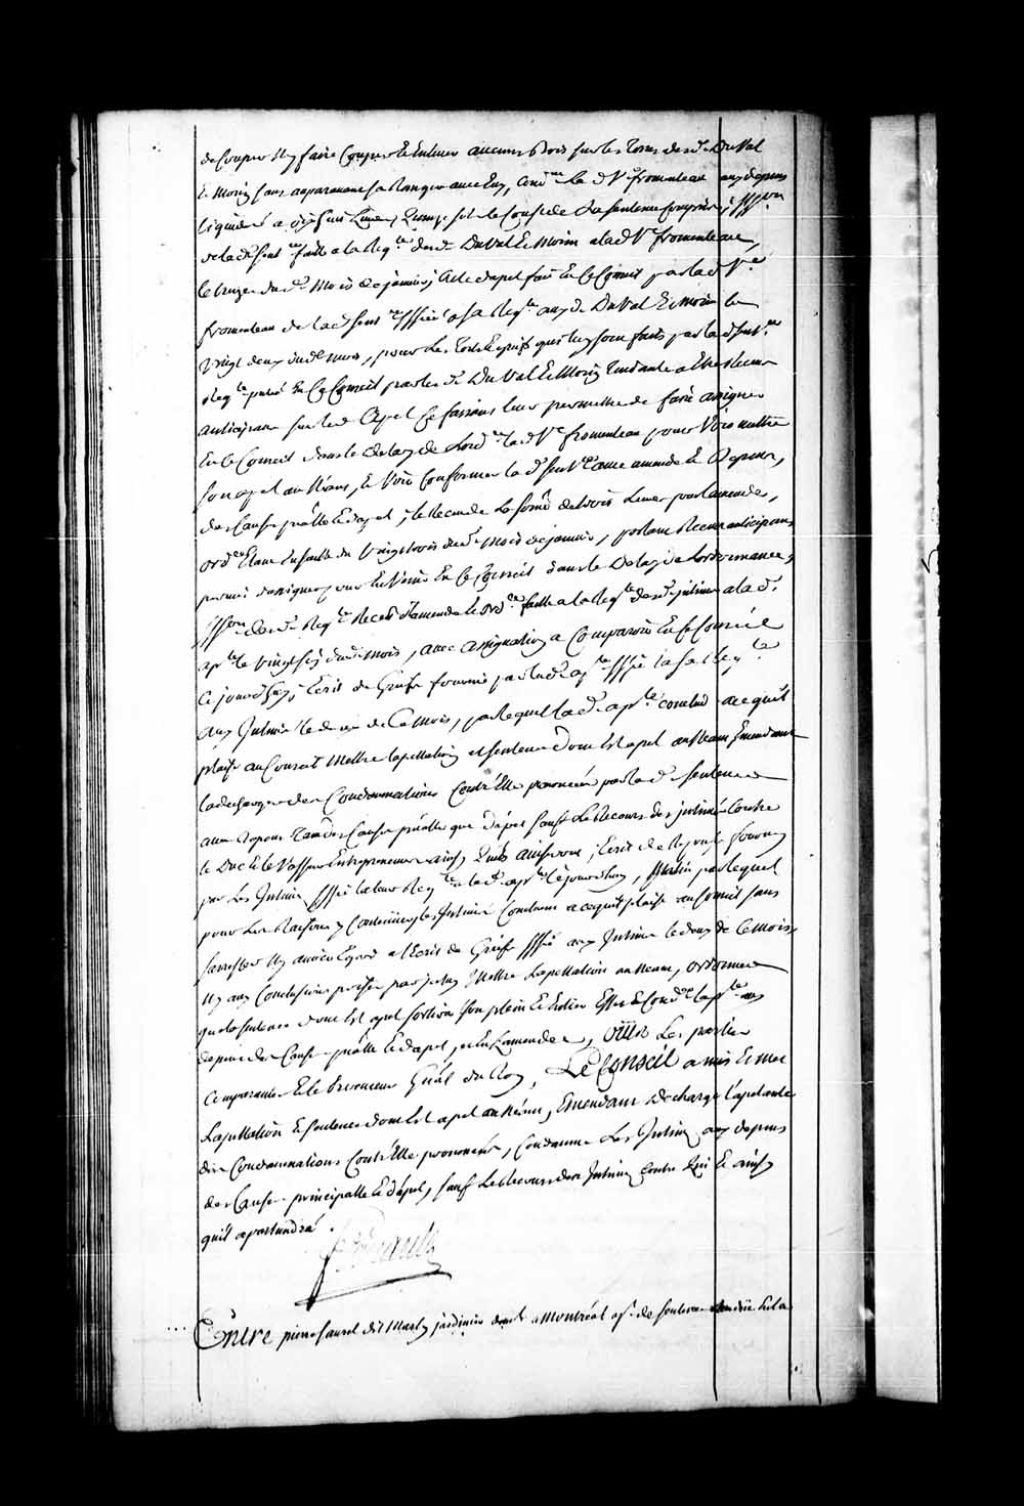 de Couper Ny faire Couper Et Enlever aucuns Bois sur les Terres desd. Duval
Et Morin sans auparavant se Ranger avec Eux, Cond.ne lad. Ve fromenteau aux depens
liquidés a
de lad. Sent.ce faitte a la Req.te desd. Duval Et Morin a lad. Ve fromenteau,
le dud. Mois de janvier, Acte d'apel fait En Ce Conseil par lad. Ve
fromenteau de lad. Sent.ce signiffié a sa Req.te auxd. Duval Et Morin le
Vingt deux dud. mois, pour les Torts Et griefs qui luy sont faits par lad. Sent.ce
Req.te pnté En Ce Conseil par lesd. Duval Et Morin Tendante a Etre Receus
anticipans sur led. Apel Ce faisant leur permettre de faire assigner
En Ce Conseil dans le delay de L'ord.ce lad. Ve fromenteau pour Voir mettre
son apel au Néant, Et Voir Confirmer lad. Sent.ce avec amende Et Depens,
des Causes p.alle Et d'apel; le Recu de la Somme de trois Livres pour l'amende,
ord.ce Etant Ensuitte du Vingt trois dud. Mois de janvier, portant Receus anticipans
permis d'assigner pour En Venir En Ce Conseil dans le Delay de L'ordonnance,
desd. Req.te Recu d'amende Et Ord.ce faitte a la Req.te desd. jntimés a lad.
ap.te le Vingt six dud. mois, avec assignation a Comparoir En Ce Conseil
Ce jourd'huy; Ecrit de Griefs fourny par lad. ap.te signiffié a sa Req.te
aux Jntimés le de Ce Mois, par lequel lad. ap.te conclud a ce qu'il
plaise au Conseil Mettre l'apellation Et sentence dont Est apel au Neant Emendant
la decharger des Condamnations Contr'Elle prononcées par lad. sentence
avec depens Tant des Causes p.alle que d'apel sauf Le Recours des jntimés Contre
le Duc Et le Vasseur Entrepreneurs ainsy qu'ils aviseront; Ecrit de Reponse fourny
par Les Jntimés signiffié a leur Req.te a lad. ap.te Cejourd'huy, Matin par lequel
pour Les Raisons y Contenües les Jntimés Concluent a ce qu'il plaise au Conseil sans
s'arrester Ny avoir Egard a l'Ecrit de Griefs signiffié aux Jntimés le deux de Ce Mois,
Ny aux Conclusions prises par jceluy Mettre L'apellation au Neant, ordonner
que la sentence dont Est apel sortira son plein Et Entier Effet Et Cond.er l'ap.te aux
depens des Causes p.alle Et d'apel, et En l'amende, Oüis Les parties
Comparantes Et le Procureur Gnal du Roy, Le Conseil a mis Et met
L'apellation Et sentence dont Est apel au Néant, Emendant decharge l'apelante
des Condamnations Contr'Elle prononcées, Condamne Les Jntimés aux depens
des Causes principalle Et d'apel, sauf Le Recours des Jntimés Contre Qui Et ainsy
qu'il apartiendra
Entre pierre saurel dit Marly jardinier dem.t a Montréal ap. de sentence